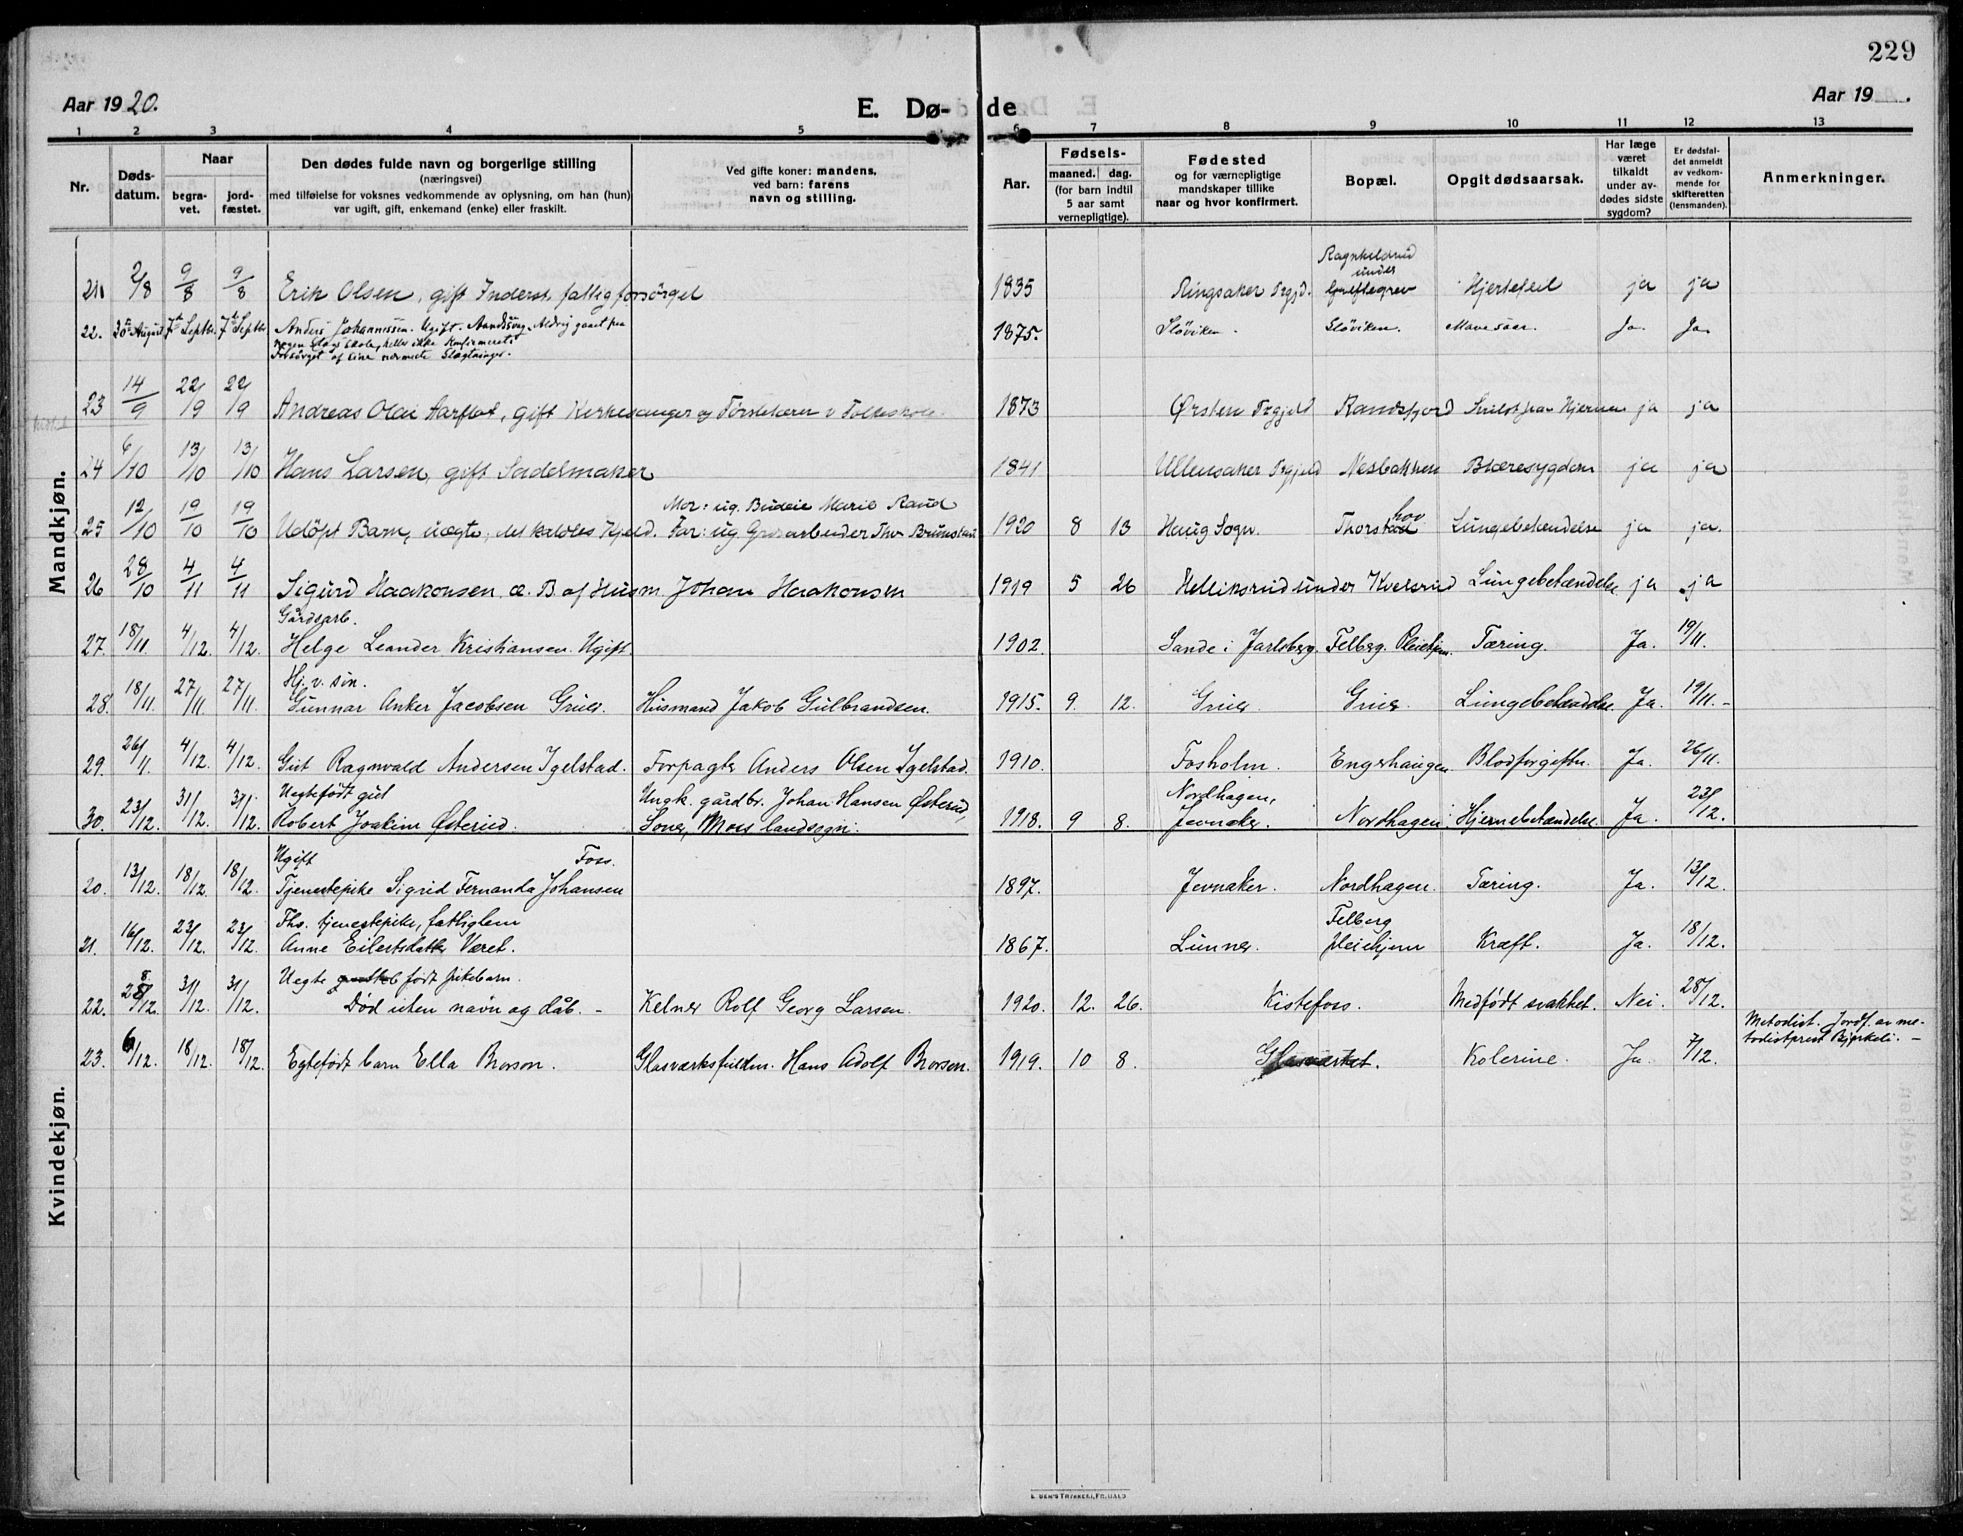 229
Aar 1920.
E. Dø-
de
Aar 19 .
1 2 3 4 5 6 7 8 9 10 11 12 13
Nr.
Døds-
datum.
Naar
begra-
vet.
jord-
fæstet.
Den dødes fulde navn og borgerlige stilling
(næringsvei)
med tilføielse for voksnes vedkommende av oplysning, om han (hun)
var ugift, gift, enkemand (enke) eller fraskilt.
Ved gifte koner: mandens,
ved barn: farens
navn og stilling.
Aar.
Fødsels-
maaned. dag.
(for barn indtil
5 aar samt
vernepligtige).
Fødested
og for værnepligtige
mandskaper tillike
naar og hvor konfirmert.
Bopæl.
Opgit dødsaarsak.
Har læge
været
tilkaldt
under av-
dødes sidste
sygdom?
Er dødsfal-
det anmeldt
av vedkom-
mende for
skifteretten
(lensmanden).
Anmerkninger.
Mandkjøn.
Ragnhildsrud
under
21 2/8 9/8 9/8 Erik Olsen, gift Inderst, fattigforsørget 1835 Ringsaker Prgjd. Hjertefeil ja ja
22. 30te August 7de Septbr. 7de Septbr. Anders Johannessen. Ugift. Aandssvag. Aldrig gaaet paa 1875. Sløviken. Sløviken. Mavesaar. Ja. Ja.
nogen Slags Skole, heller ikke Konfirmeret.
Forsørget af sine nærmeste Slægtninger.
23 14/9 22/9 22/9 Andreas Olai Aarflot, gift Kirkesanger og Førstelærer v Folkeskole 1873 Ørsten Prgjeld Randsfjord Hjernen ja ja
24 6/10 13/10 13/10 Hans Larsen, gift Sadelmaker 1841 Ullensaker Prgjeld Nesbakken Blæresygdom ja ja
Mor: ug. Budeie Marie Rand
25 12/10 19/10 19/10 Udöpt Barn, uægte, det kaldtes Kjeld. Far: ug. Thv. 1920 8 13 Haug Sogn. Thorstad hov Lungebetændelse ja ja.
26 28/10 4/11 4/11 Sigurd Haakonsen æ. B. af Husm Johan Haakonsen 1919 5 26 Helliksrud under Kvelsrud Lungebetændelse ja ja
Gårdsarb.
27. 18/11. 4/12. 4/12. Helge Leander Kristiansen. Ugift. 1902. Sande i Jarlsberg. Felberg Pleiehjem. Tæring. Ja. 19/11.
Hj. v. søn.
28. 18/11. 27/11. 27/11. Gunnar Anker Jacobsen Gruer. Husmand Jakob Gulbrandsen. 1915. 9. 12. Gruer. Gruer. Lungebetændelse. Ja. 19/11. -
29. 26/11. 4/12. 4/12. Gut Ragnvald Andersen Igelstad. Forpagter Anders Olsen Igelstad. 1910. Fosholm. Engerhaugen Blodforgiftn. Ja. 26/11.
Uegtefødt gut Ungk. gårdbr. Johan Hansen Østerud, Nordhagen,
30. 23/12. 31/12. 31/12. Robert Joakim Østerud. Soner, Moss landsogn. 1918. 9 8. Jevnaker. Nordhagen. Hjernebetændelse. Ja. 23/12.
Kvindekjøn.
Ugift Foss.
20. 13/12. 18/12. 18/12. Tjenestepike Sigrid Fernanda Johansen 1897. Jevnaker. Nordhagen. Tæring. Ja. 13/12.
Fhv. tjenestepike, fattiglem Felberg
21. 16/12. 23/12. 23/12. Anne Eilertsdatter Været. 1867. Lunner. pleiehjem Kræft. Ja. 18/12.
Uegte født pikebarn.
22. 28/12. 31/12. 31/12. Død uten navn og dåb. - Kelner Rolf Georg Larsen. 1920. 12. 26. Kistefoss. Medfødt svakhet. Nei. 28/12.
Metodist. Jordf. av me-
todistprest Bjerkeli. -
23. 6/12. 18/12. 18/12. Egtefødt barn Ella Brorson. Glasværksfuldm. Hans Adolf Brorson. 1919. 10 8. Glasværket. Kolerine. Ja. 7/12.